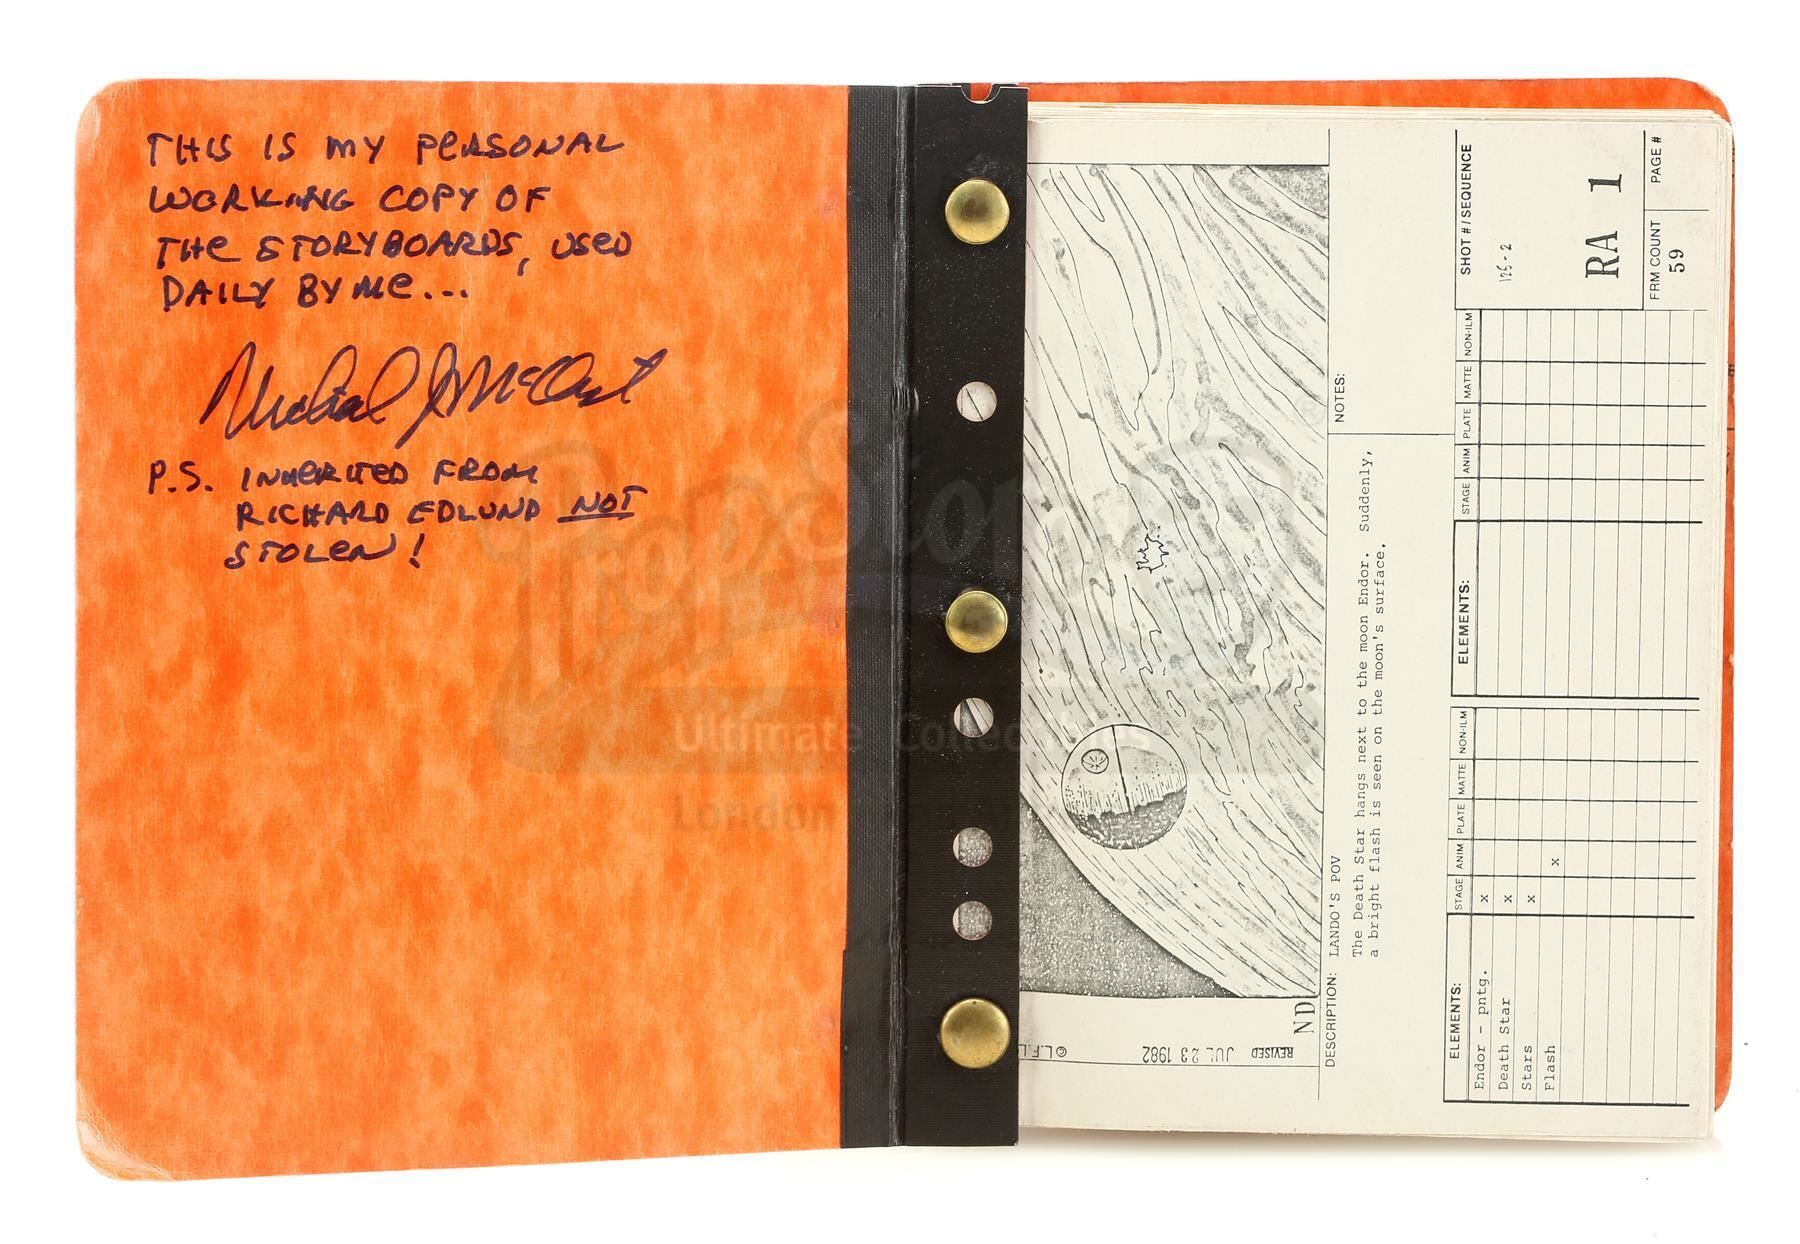 THIS IS MY PERSONAL
WORKING COPY OF
THE STORYBOARDS, USED
DAILY BY ME...
Michael J McAlister
P.S. INHERITED FROM
RICHARD EDLUND NOT
STOLEN!
PropStore
Ultimate Collectibles
London
SHOT #/SEQUENCE
125-2
RA 1
PAGE #
FRM COUNT
59
NOTES:
© L.F.L.
REVISED JUL 23 1982
ND
DESCRIPTION: LANDO'S POV
The Death Star hangs next to the moon Endor. Suddenly,
a bright flash is seen on the moon's surface.
ELEMENTS: STAGE ANIM PLATE MATTE NON-ILM
Endor - pntg. x
Death Star x
Stars x
Flash x
ELEMENTS: STAGE ANIM PLATE MATTE NON-ILM